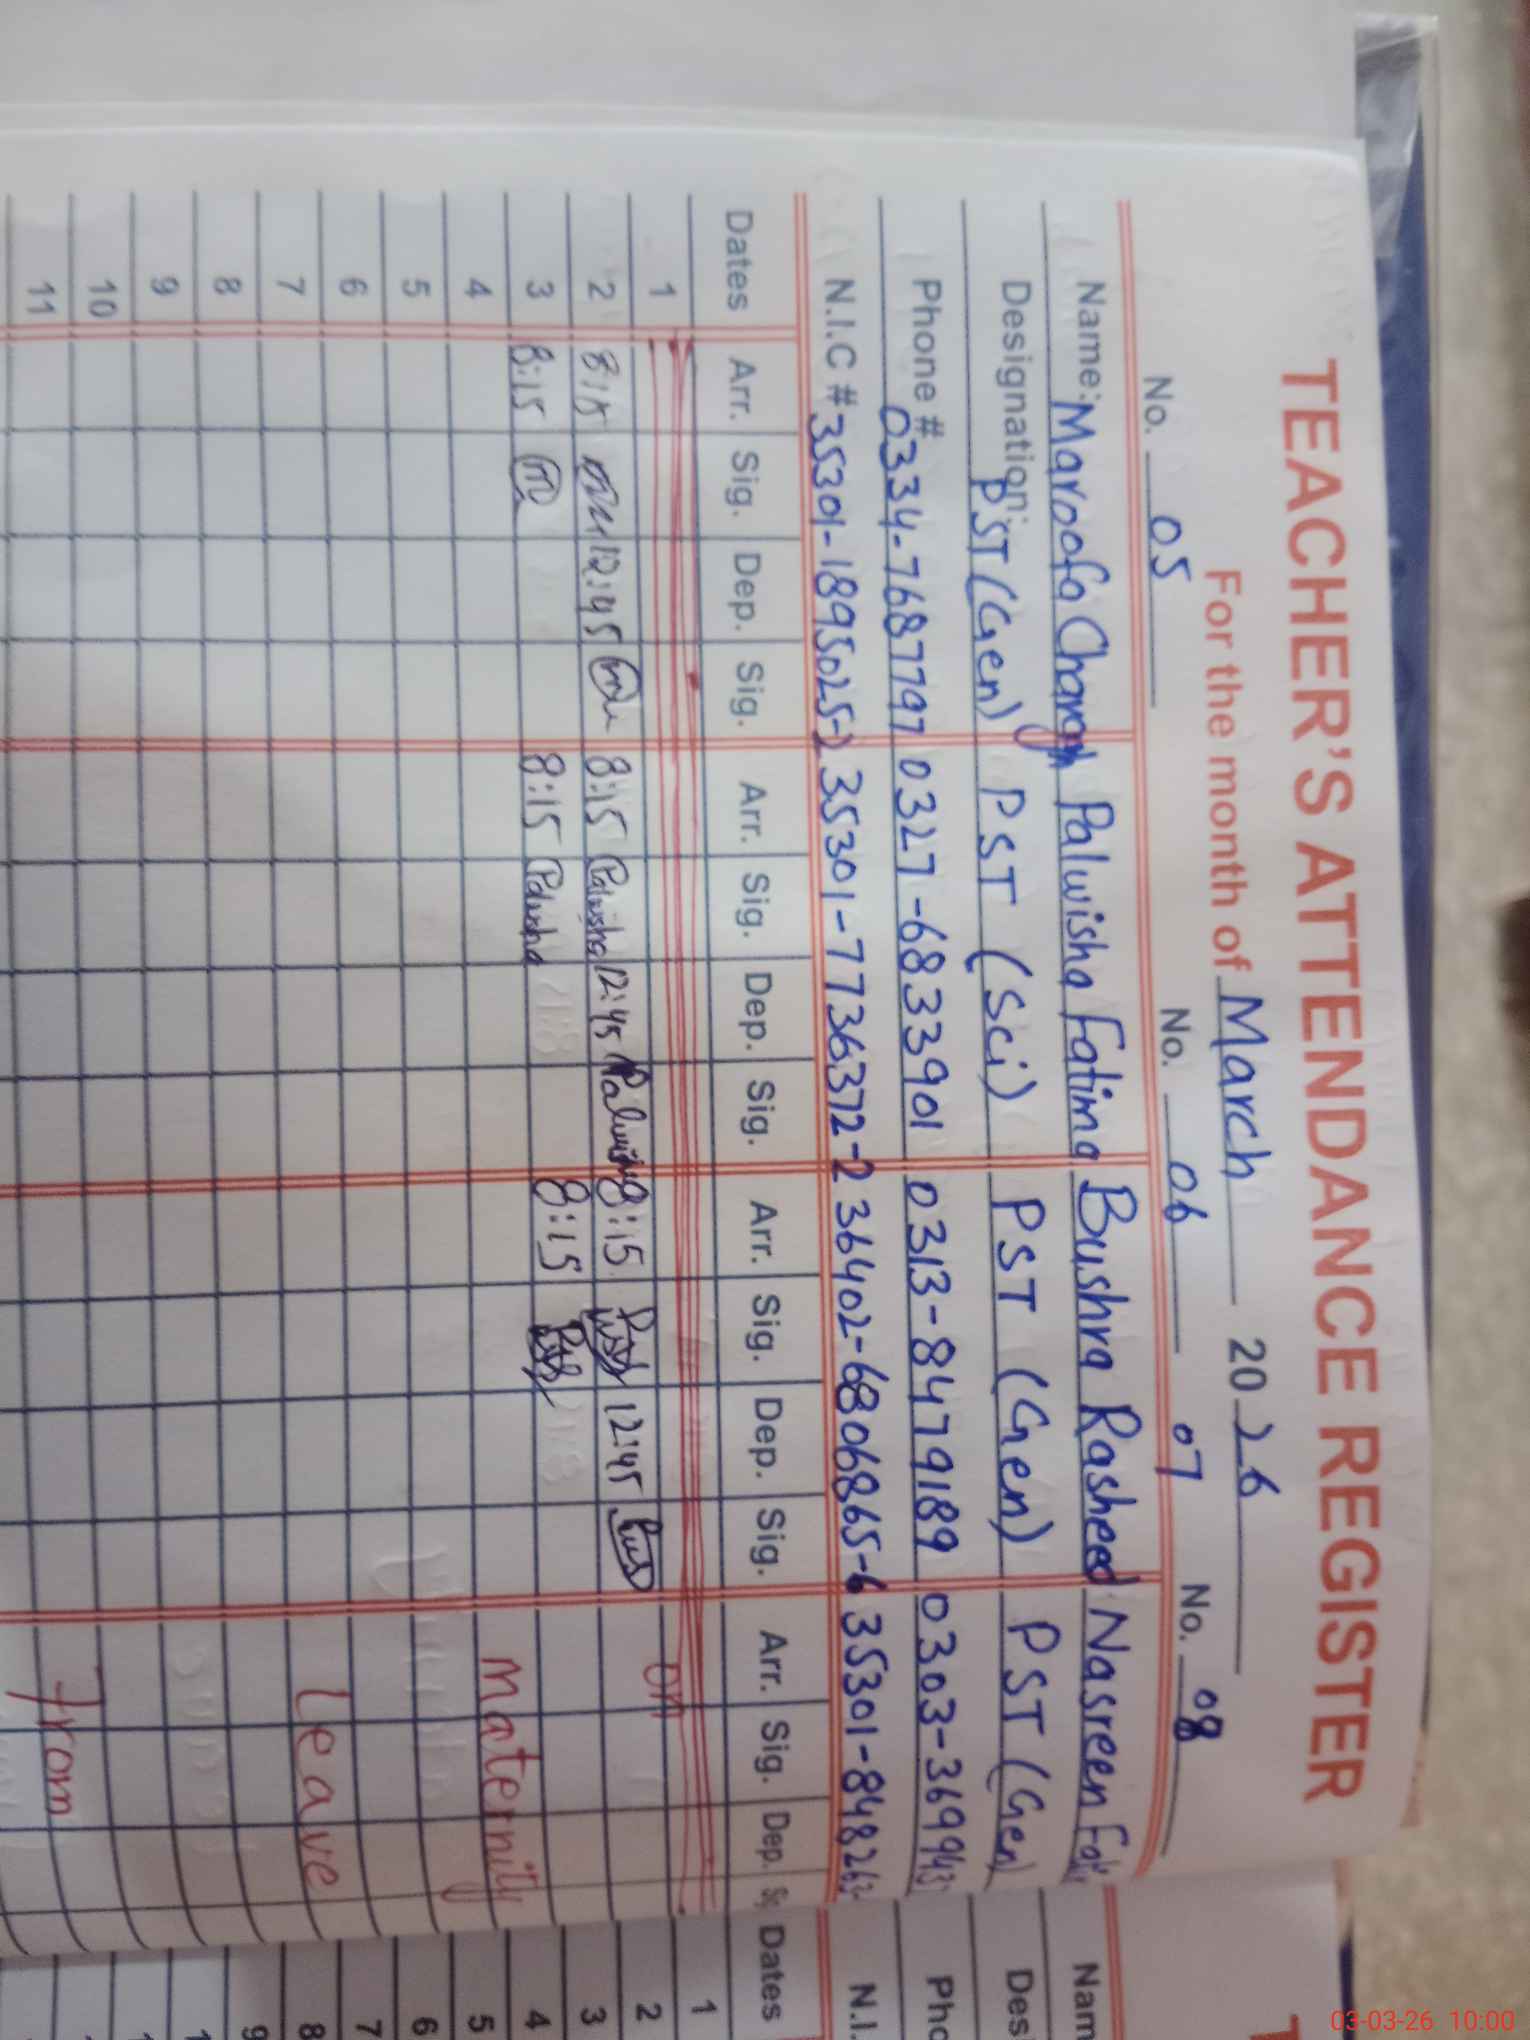 TEACHER'S ATTENDANCE REGISTER
For the month of March 2026
No. 05 No. 06 07 No. 08
Name: Maroofa Charagh Palwisha Fatima Bushra Rasheed Nasreen
Designation: PST (Gen) PST (Sci) PST (Gen) PST (Gen)
Phone # 0334-7687797 0327-6833901 0313-8479189 0303-369943
N.I.C # 35301-1895025-2 35301-7736372-2 36402-6806865-6 35301-848263
Dates Arr. Sig. Dep. Sig. Arr. Sig. Dep. Sig. Arr. Sig. Dep. Sig. Arr. Sig. Dep.
1 on
2 8:15 12:45 8:15 Palwisha 12:45 Palwisha 8:15 12:45
3 8:15 8:15 Palwisha 8:15
4 maternity
5
6
7 Leave
8
9
10
11 from
Nam
Des
Pho
N.I.
Dates
1
2
3
4
5
6
7
8
9
03-03-26 10:00